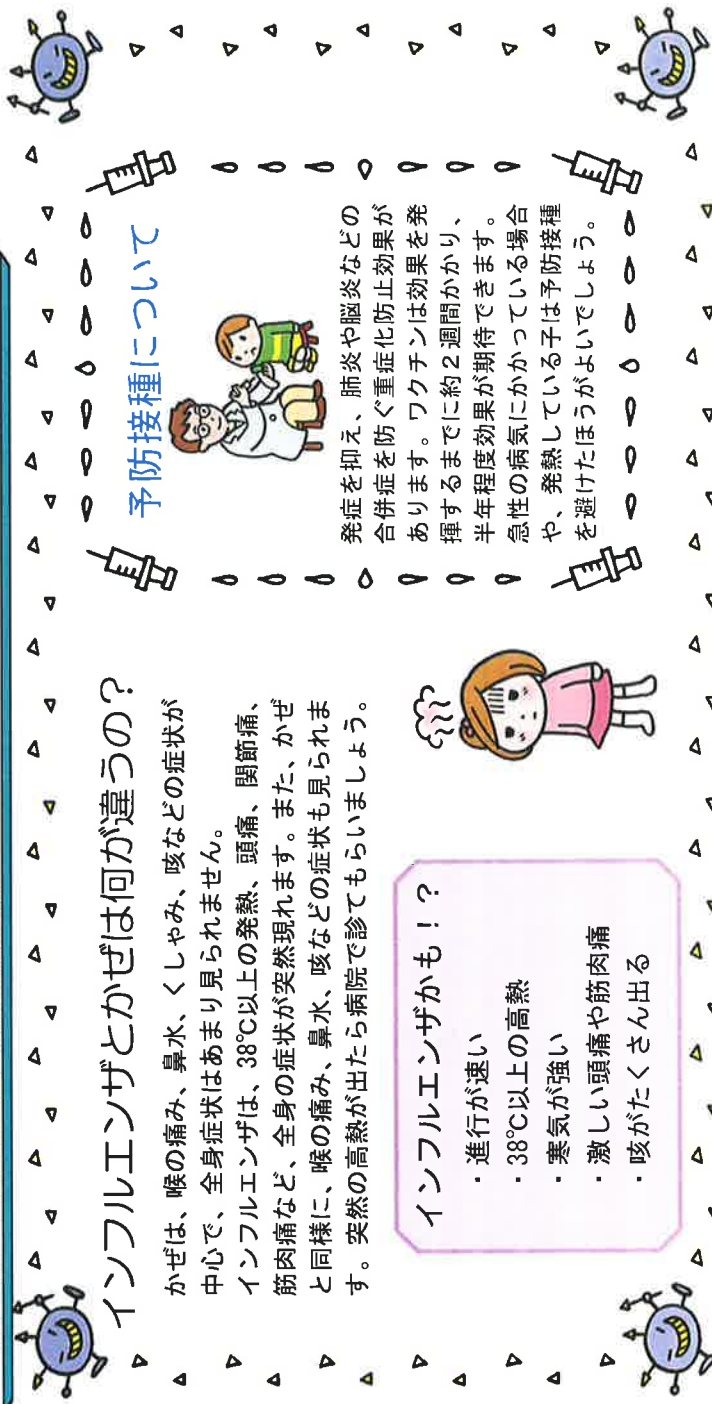 インフルエンザとかぜは何が違うの？
かぜは、喉の痛み、鼻水、くしゃみ、咳などの症状が
中心で、全身症状はあまり見られません。
インフルエンザは、38℃以上の発熱、頭痛、関節痛、
筋肉痛など、全身の症状が突然現れます。また、かぜ
と同様に、喉の痛み、鼻水、咳などの症状も見られま
す。突然の高熱が出たら病院で診てもらいましょう。
インフルエンザかも！？
・進行が速い
・38℃以上の高熱
・寒気が強い
・激しい頭痛や筋肉痛
・咳がたくさん出る
予防接種について
発症を抑え、肺炎や脳炎などの
合併症を防ぐ重症化防止効果が
あります。ワクチンは効果を発
揮するまでに約２週間かかり、
半年程度効果が期待できます。
急性の病気にかかっている場合
や、発熱している子は予防接種
を避けたほうがよいでしょう。